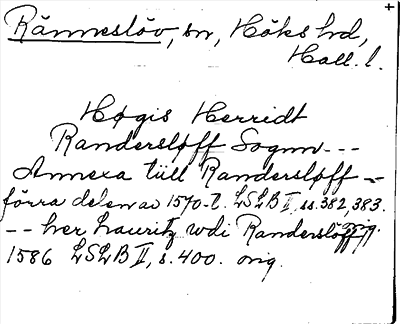 Ränneslöv, sn, Höks hd,
Hall. l.
Høgis Herridt
Randersløff Sognn ---
Annexa till Randersløff --
förra delen av 1570-t. LSLB I, ss. 382, 383.
orig.
-- her Lauritz udi Randersløff
1586 LSLB II, s. 400. orig.